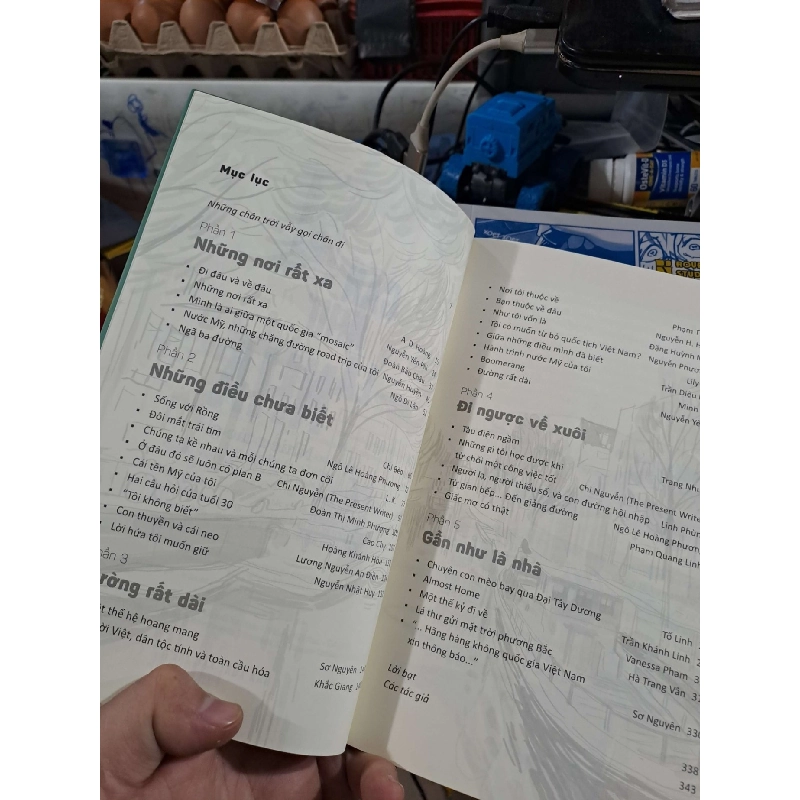 Mục lục
Những chân trời vẫy gọi chân đi
Phần 1
Những nơi rất xa
• Đi đâu và về đâu
• Những nơi rất xa
• Mình là ai giữa một quốc gia "mosaic"
• Nước Mỹ, những chặng đường road trip của tôi
• Ngã ba đường
Phần 2
Những điều chưa biết
• Sống với Rồng
• Đôi mắt trái tim
• Chúng ta kề nhau và mỗi chúng ta đơn côi Ngô Lê Hoàng Phương
• Ở đâu đó sẽ luôn có plan B
• Cái tên Mỹ của tôi Chi Nguyễn (The Present Writer)
• Hai câu hỏi của tuổi 30 Đoàn Thị Minh Phượng
• "Tôi không biết"
• Con thuyền và cái neo Hoàng Khánh Hòa
• Lời hứa tôi muốn giữ Lương Nguyễn An Điền
Nguyễn Nhất Huy
Phần 3
ường rất dài
t thế hệ hoang mang Sơ Nguyên
ời Việt, dân tộc tính và toàn cầu hóa Khắc Giang
• Nơi tôi thuộc về
• Bạn thuộc về đâu
• Như tôi vốn là
• Tôi có muốn từ bỏ quốc tịch Việt Nam?
• Giữa những điều mình đã biết
• Hành trình nước Mỹ của tôi
• Boomerang
• Đường rất dài
Phần 4
Đi ngược về xuôi
• Tàu điện ngầm
• Những gì tôi học được khi
từ chối một công việc tốt
• Người lạ, người thiểu số, và con đường hội nhập
Chi Nguyễn (The Present Writer
• Từ gian bếp... Đến giảng đường
• Giấc mơ có thật
Ngô Lê Hoàng Phươn
Phạm Quang Linh
Phần 5
Gần như là nhà
• Chuyện con mèo bay qua Đại Tây Dương
• Almost Home Tố Linh
• Một thế kỷ đi về Trần Khánh Linh
• Lá thư gửi mặt trời phương Bắc Vanessa Pham
• "... Hãng hàng không quốc gia Việt Nam Hà Trang Vân
xin thông báo..."
Sơ Nguyên 330
Lời bạt 338
Các tác giả 343
OsteVit-D
Vitamin D3